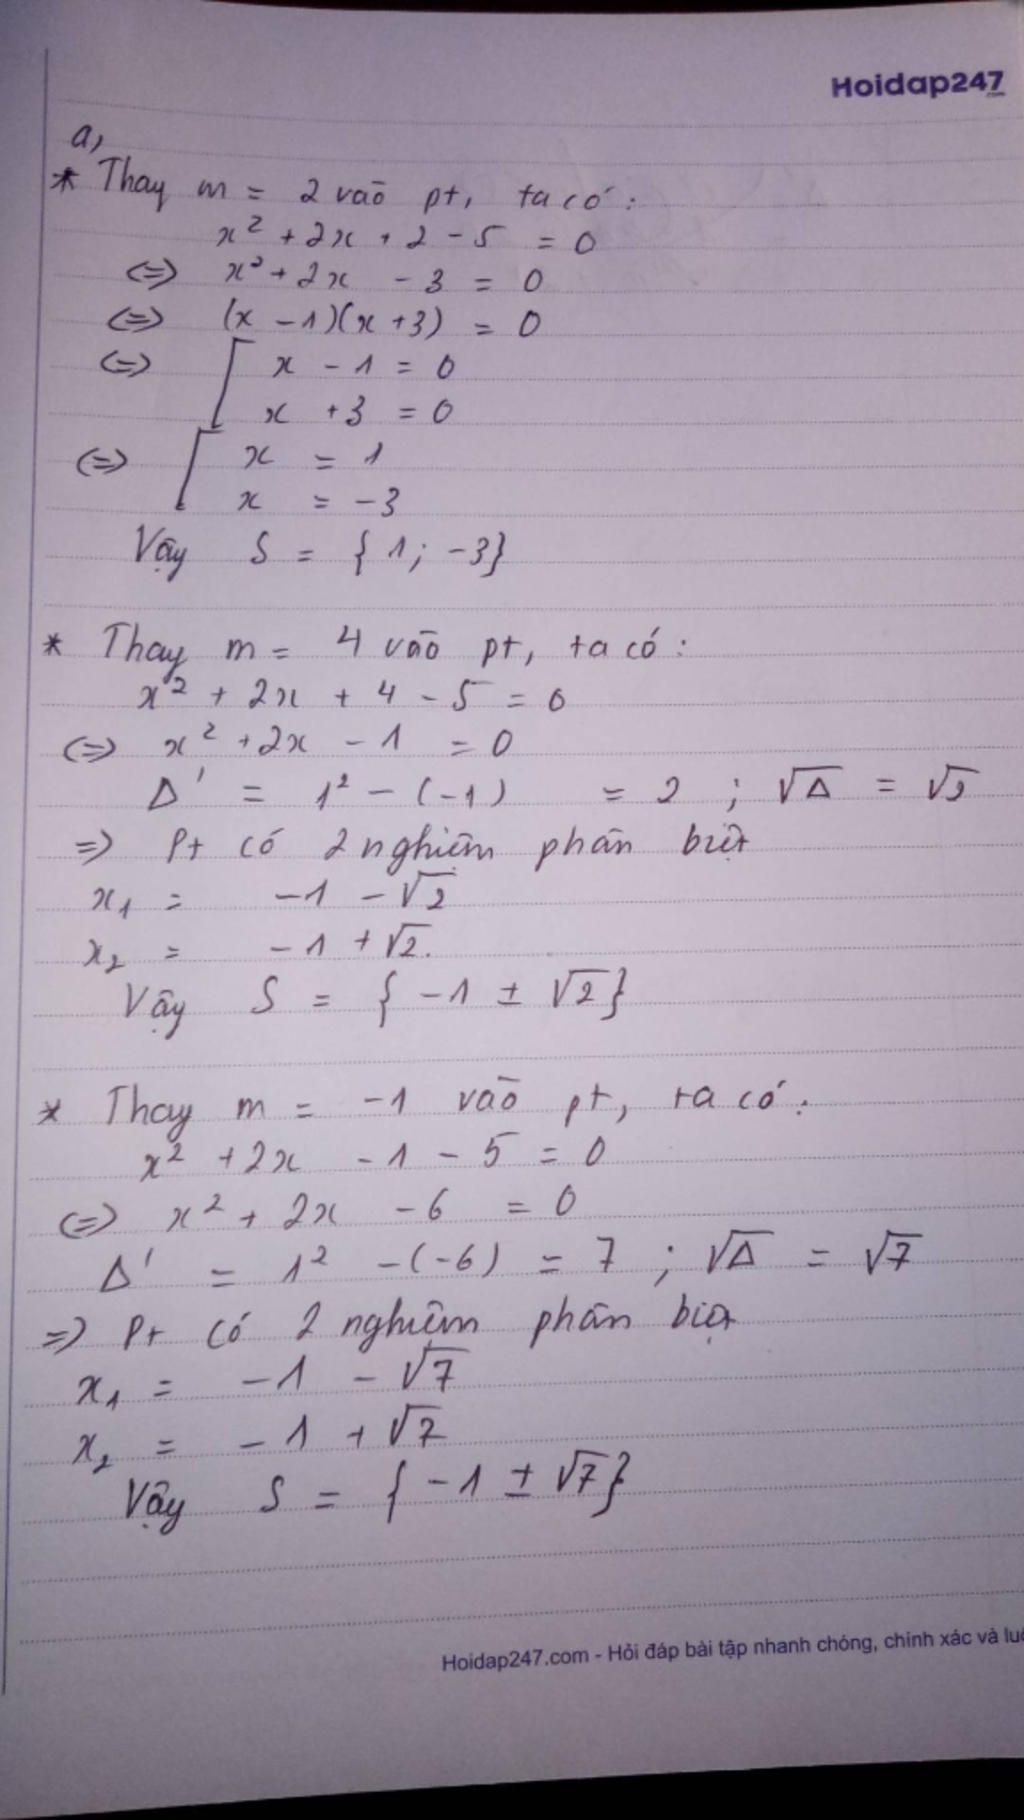 Hoidap247
.com
a,
* Thay m = 2 vào pt, ta có:
x² + 2x + 2 - 5 = 0
(=) x² + 2x - 3 = 0
(=) (x - 1)(x + 3) = 0
(=) [ x - 1 = 0
x + 3 = 0
(=) [ x = 1
x = -3
Vậy S = {1; -3}
* Thay m = 4 vào pt, ta có:
x² + 2x + 4 - 5 = 0
(=) x² + 2x - 1 = 0
Δ' = 1² - (-1) = 2 ; √Δ = √2
=) Pt có 2 nghiệm phân biệt
x₁ = -1 - √2
x₂ = -1 + √2.
Vậy S = {-1 ± √2}
* Thay m = -1 vào pt, ta có:
x² + 2x - 1 - 5 = 0
(=) x² + 2x - 6 = 0
Δ' = 1² - (-6) = 7 ; √Δ = √7
=) Pt có 2 nghiệm phân biệt
x₁ = -1 - √7
x₂ = -1 + √7
Vậy S = {-1 ± √7}
Hoidap247.com - Hỏi đáp bài tập nhanh chóng, chính xác và